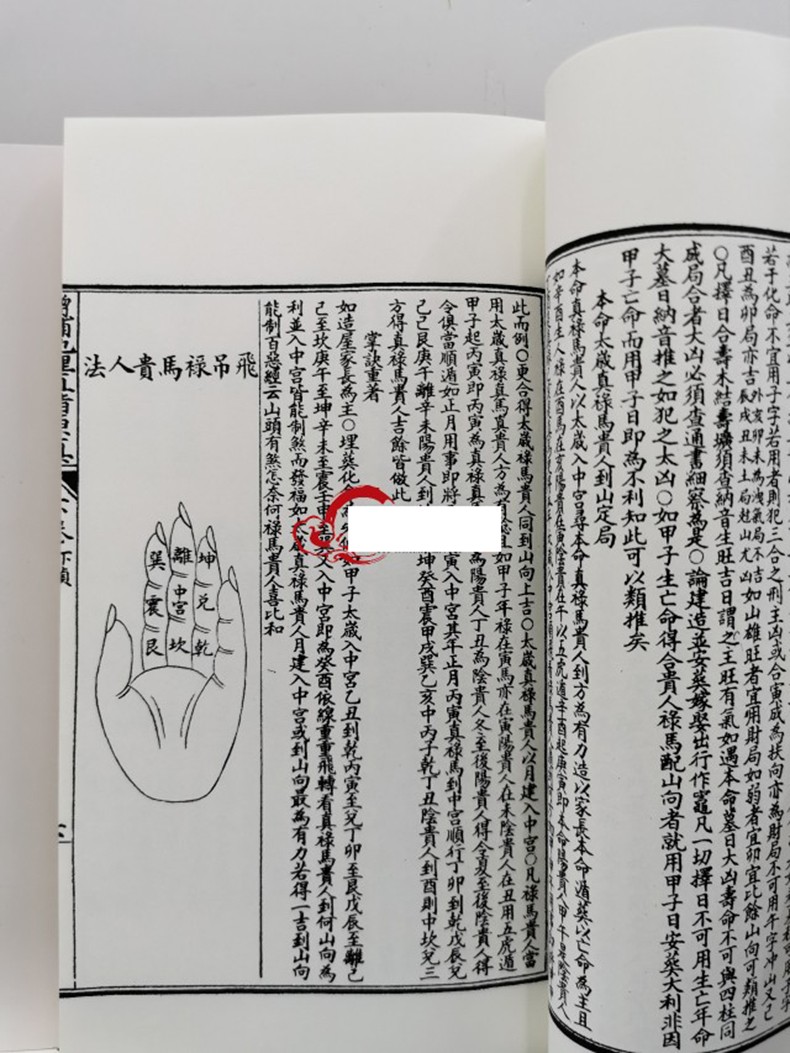 若干化命不宜用子字若用者則犯三合之刑主凶或合寅戌為扶向亦為財局不可用午字冲山又己
酉丑為卯局亦吉外亥卯未為洩氣局不吉辰戌丑未土局尅山尤凶如山雄旺者宜用財局如弱者宜卯宜比餘山向可類推之
○凡擇日合壽木結壽壙須查納音生旺吉日謂之主旺有氣如遇本命墓日大凶壽命不可與四柱同
戚局合者大凶必須查通書細察為是○論建造並安葬嫁娶出行作竈凡一切擇日不可用生亡年命
大墓日納音推之如犯之太凶○如甲子生亡命得合貴人祿馬配山向者就用甲子日安葬大利非因
甲子亡命而用甲子日即為不利知此可以類推矣
本命太歲真祿馬貴人到山定局
本命真祿馬貴人以太歲入中宮尋本命真祿馬貴人到方為有力造以家長本命遁葬以亡命為主且
如辛酉生人祿在酉馬在亥陽貴在寅陰貴在午以五虎遁辛酉起庚寅即本命陽貴人甲午是陰貴人
此而例○更合得太歲祿馬貴人同到山向上吉○太歲真祿馬貴人以月建入中宮○凡祿馬貴人當
用太歲真祿真馬真貴人方為有 如甲子年祿在寅馬亦在寅陽貴人在未陰貴人在丑用五虎遁
甲子起丙寅即丙寅為真祿真 為陽貴人丁丑為陰貴人冬至後陽貴人得令夏至後陰貴人得
令俱當順遁如正月用事即將 寅入中宮其年正月丙寅真祿馬到中宮順行丁卯到乾戊辰兌
己巳艮庚午離辛未陽貴人到 坤癸酉震甲戌巽乙亥中丙子乾丁丑陰貴人到酉則中坎兌三
方得真祿馬貴人吉餘皆倣此
掌訣重著
如造屋家長為主○埋葬化 如甲子太歲入中宮乙丑到乾丙寅至兌丁卯至艮戊辰至離己
己至坎庚午至坤辛未至震壬申至巽又入中宮即為癸酉依線重重飛轉看真祿馬貴人到何山向為
利並入中宮皆能制煞而發福如太歲真祿馬貴人月建入中宮或到山向最為有力若得一吉到山向
能制百惡經云山頭有煞怎奈何祿馬貴人喜比和
飛吊祿馬貴人法
坤兌乾
離中宮坎
巽震艮